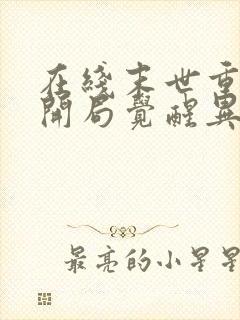 在线末世重
開局覺醒異
最亮的小星星